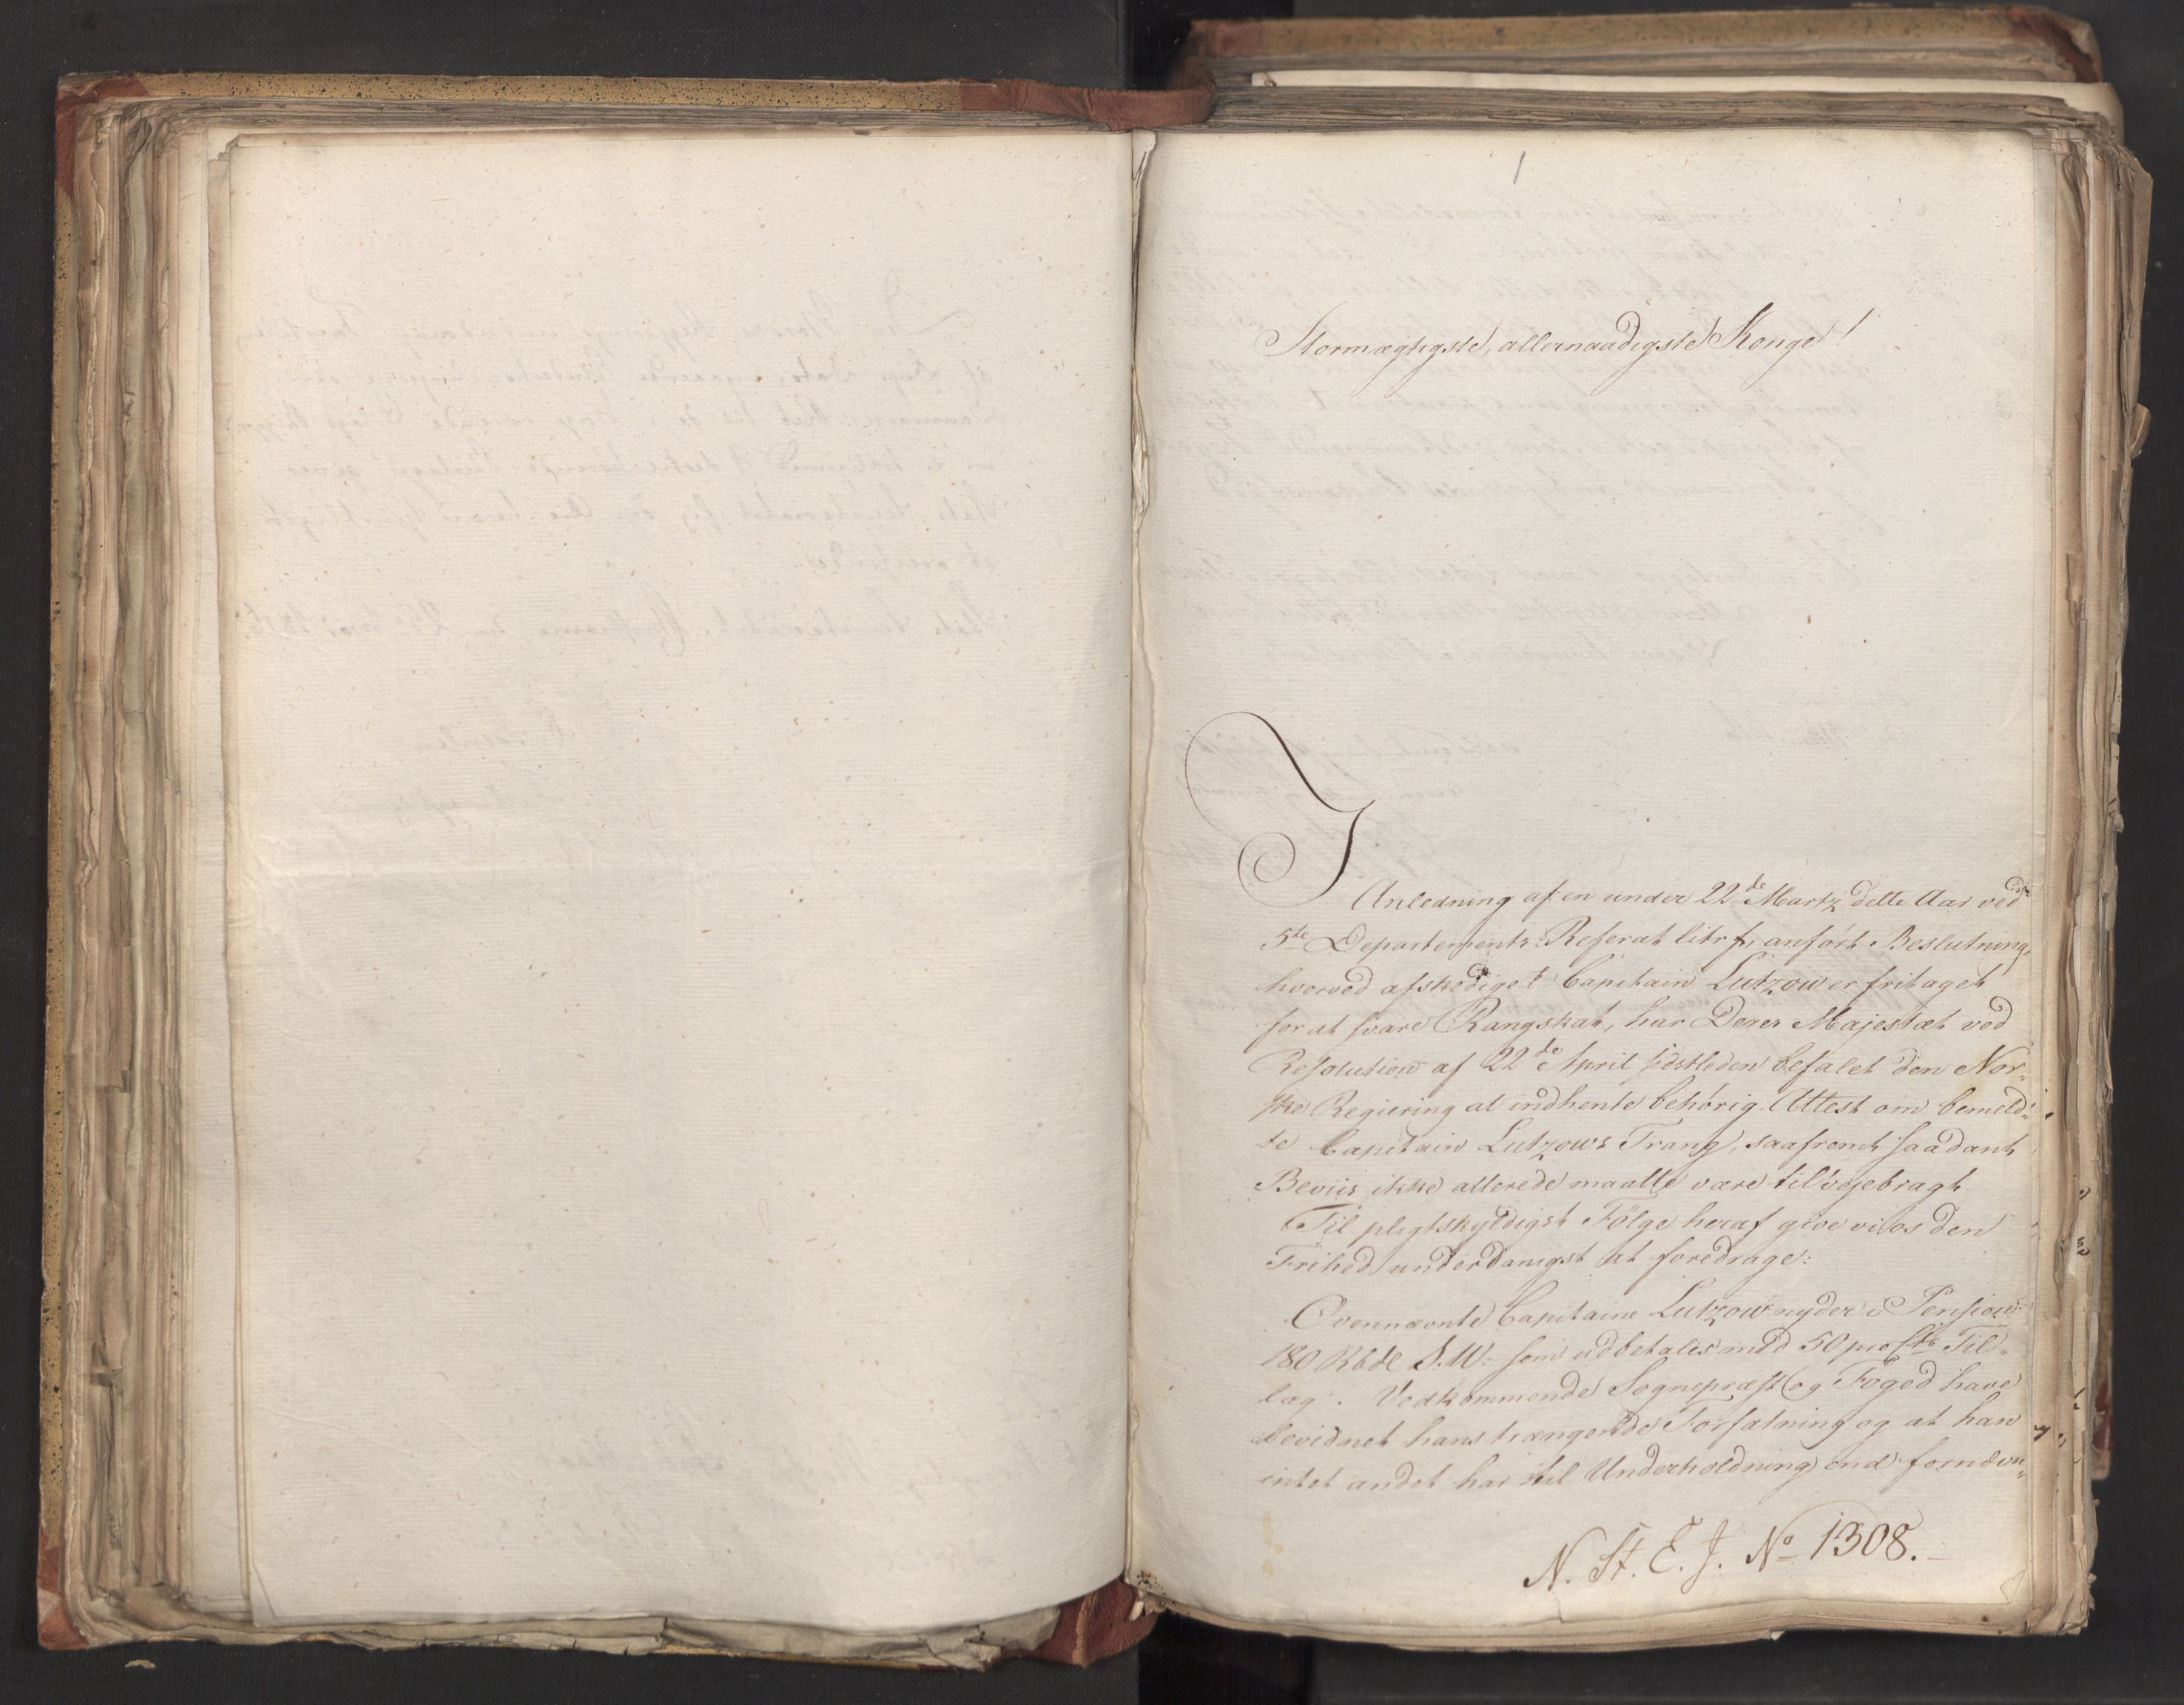 1
Stormægtigste, allernaadigste Konge!
I
Anledning af en under 22de Martz dette Aar ved
5te Departements Referat litr f, anført Beslutning,
hvorved afskediget Capitain Lutzow er fritaget
for at svare Rangskat, har Deres Majestæt ved
Resolution af 22de April sidstleden befalet den Nor-
ske Regiering at indhente behørig Attest om bemeld-
te Capitain Lutzows Trang, saafremt saadant
Beviis ikke allerede maatte være tilvejebragt.
Til pligtskyldigst Følge heraf give vi os den
Frihed underdanigst at foredrage:
Ovennævnte Capitaine Lutzow nyder i Pension
180 Rbdl S.W: som udbetales med 50 pro Cto Til-
læg. Vedkommende Sognepræst og Foged have
bevidnet hans trængende Forfatning og at han
intet andet har til Underholdning end fornævn-
N. St. E. J. No 1308.